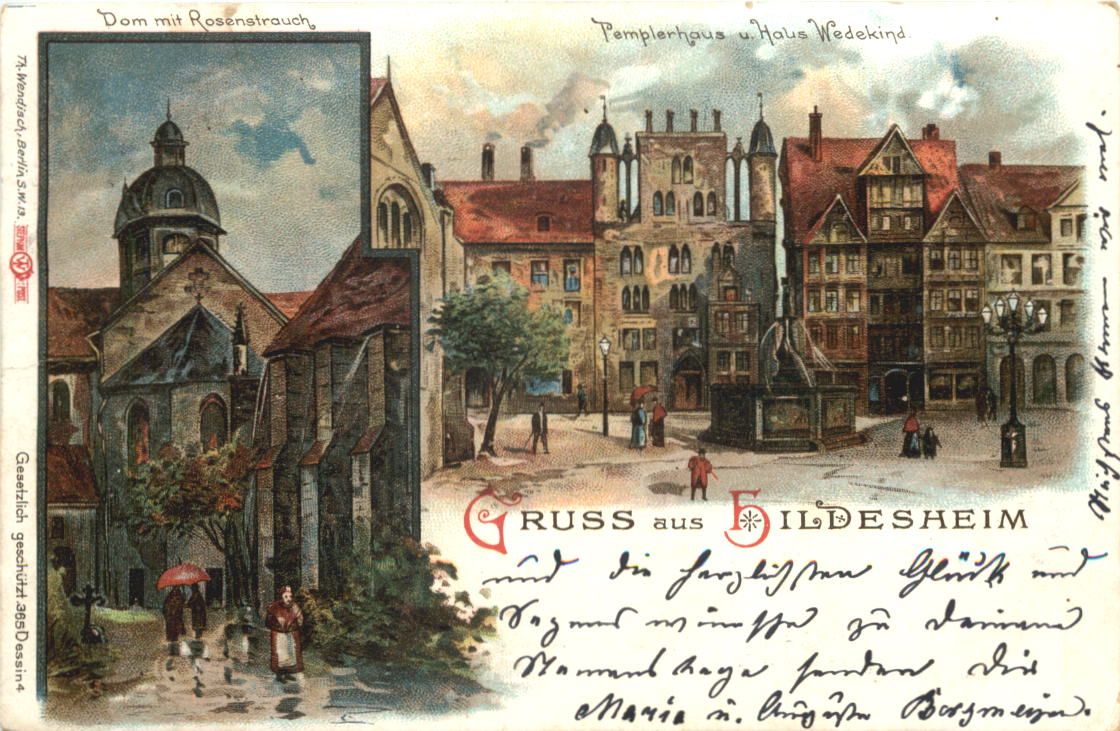 Dom mit Rosenstrauch
Templerhaus u. Haus Wedekind.
Th. Wendisch, Berlin S.W.13.
Gesetzlich geschützt. 365 Dessin 4
GRUSS AUS HILDESHEIM
und die herzlichsten Glück und
Segenswünsche zu Deinem
Namenstage senden Dir
Maria u. Auguste Borgmeyer.